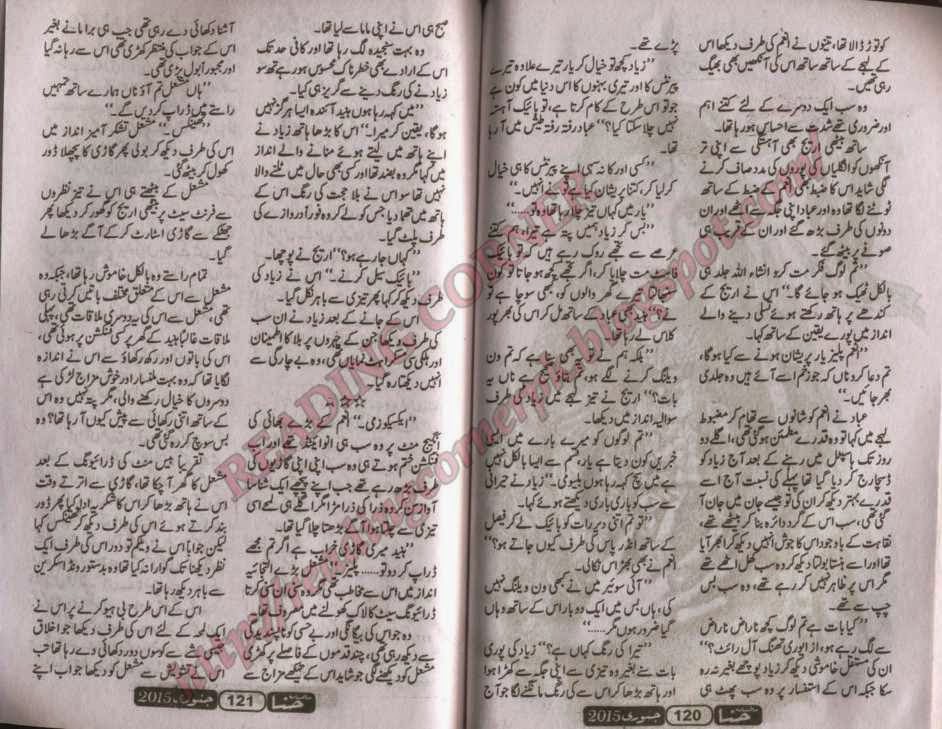 کو توڑ ڈالا تھا، تینوں نے انعم کی طرف دیکھا اس
کے لہجے کے ساتھ ساتھ اس کی آنکھیں بھی بھیگ
رہی تھیں۔
وہ سب ایک دوسرے کے لئے کتنے اہم
اور ضروری تھے شدت سے احساس ہو رہا تھا۔
ساتھ بیٹھی اریج بھی آہستگی سے اپنی تر
آنکھوں کو انگلیوں کی پوروں کی مدد صاف کرنے
لگی شاید اس کا ضبط بھی انعم کے ضبط کے ساتھ
ٹوٹنے لگا تھا وہ اور عباد اپنی جگہ سے اٹھے اور ان
دونوں کی طرف بڑھ گئے اور ان کے قریب ہی
صوفے پر بیٹھ گئے۔
"تم لوگ فکر مت کرو انشاء اللہ جلد ہی
بالکل ٹھیک ہو جائے گا۔" اس نے اریج کے
کندھے پر ہاتھ رکھتے ہوئے تسلی دینے والے
انداز میں پورے یقین کے ساتھ کہا۔
"انعم پلیز یار پریشان ہونے سے کیا ہوگا،
تم دعا کرو ناں کہ جو زخم اسے آئے ہیں وہ جلدی
بھر جائیں۔"
عباد نے انعم کو شانوں سے تھام کر مضبوط
لہجے میں کہا تو وہ قدرے مطمئن ہو گئی تھی، اگلے دو
روز تک ہاسپٹل میں رہنے کے بعد آج زیاد کو
ڈسچارج کر دیا گیا تھا پہلے کی نسبت آج اسے
قدرے بہتر دیکھ کر ان کی تو جیسے جان میں جان آ
گئی تھی، سب اس کے گرد دائرہ بنا کر بیٹھے تھے،
نقاہت کے باوجود اس کا جوش انہیں دیکھ کر ابھر آیا
تھا اور اسے ہنستا بولتا دیکھ کر وہ سب کھل اٹھے تھے
مگر اس پر ظاہر نہیں کر رہے تھے، وہ سب بس
چپ سے تھے۔
"کیا بات ہے تم لوگ کچھ ناراض ناراض
سے لگ رہے ہو، از ایوری تھنگ آل رائٹ؟"
ان کی مستقل خاموشی دیکھ کر زیاد پوچھے بغیر نہ رہ
سکا جبکہ اس کے استفسار پر وہ سب پھٹ ہی
پڑے تھے۔
"زیاد کچھ تو خیال کر یار تیرے علاوہ تیرے
پیرنٹس کا اور تیری بہنوں کا اس دنیا میں کون ہے
جو تو اس طرح کے کام کرتا ہے، تو بائیک آہستہ
نہیں چلا سکتا کیا؟" عباد رفتہ رفتہ طیش میں آ رہا
تھا۔
"کسی اور کا نہ سہی اپنے پیرنٹس کا ہی خیال
کر لیا کر، کتنا پریشان کیا ہے تو نے انہیں۔"
"یار میں کہاں تیز چلا رہا تھا وہ تو......"
"بس کر زیاد ہمیں پتہ ہے تیرا، ہم کتنے
عرصے سے تجھے روک رہے ہیں کہ تو بائیک
فاسٹ مت چلایا کر، اگر تجھے کچھ ہو جاتا تو کون
سنبھالتا تیرے گھر والوں کو، بھی سوچا ہے تو
نے؟" ہنید بھی عباد کے ساتھ مل کر اس کی بھرپور
کلاس لے رہا تھا۔
"بلکہ ہم نے تو یہ بھی سنا ہے کہ تم ون
ویلنگ کرنے لگے ہو، تم بتاؤ سچ ہے ناں یہ
بات؟" اریج نے تیز لہجے میں زیاد کی طرف
سوالیہ انداز میں دیکھا۔
"تم لوگوں کو میرے بارے میں ایسی
خبریں کون دیتا ہے یار، قسم سے ایسا بالکل نہیں
ہے میں سچ کہہ رہا ہوں بلیو می۔" زیاد نے حیرانی
سے سب کو باری باری دیکھتے ہوئے کہا۔
"تو تم اتنی دیر رات کو بائیک لے کر فیصل
کے ساتھ انڈر پاس کی طرف کیوں جاتے ہو؟"
انعم نے بھی بھڑاس نکالی۔
"آئی سوئیر میں نے کبھی ون ویلنگ نہیں
کی، ہاں بس میں ایک دو بار اس کے ساتھ وہاں
گیا ضرور ہوں مگر......"
"تیرا کی رنگ کہاں ہے؟" زیاد کی پوری
بات سنے بغیر وہ تیزی سے اپنی جگہ سے کھڑا ہوا
اور ہاتھ بڑھا کر اس سے کی رنگ مانگنے لگا جو آج
حنا 120 جنوری 2015
صبح ہی اس نے اپنی ماما سے لیا تھا۔
وہ بہت سنجیدہ لگ رہا تھا اور کافی حد تک
اس کے ارادے بھی خطرناک محسوس ہو رہے تھے سو
زیاد نے کی رنگ دینے سے گریز ہی کیا۔
"میں کہہ رہا ہوں ہنید آئندہ ایسا ہرگز نہیں
ہوگا، یقین کر میرا۔" اس کا بڑھا ہاتھ زیاد نے
اپنے ہاتھ میں لیتے ہوئے منانے والے انداز
میں کہا مگر وہ بضد تھا اور کسی بھی حال میں ٹلنے والا
نہیں تھا سو اس نے بلا حجت کی رنگ اس کے
ہاتھ میں تھما دیا جس کو لے کر وہ فوراً دروازے کی
طرف پلٹ گیا۔
"کہاں جا رہے ہو؟" اریج نے پوچھا۔
"بائیک سیل کرنے۔" اس نے زیاد کی
طرف دیکھ کر کہا پھر تیزی سے باہر نکل گیا۔
اس کے جانے کے بعد زیاد نے ان سب
کی طرف دیکھا جن کے چہروں پر بلا کا اطمینان
اور ہلکی سی مسکراہٹ نمایاں تھی، وہ بے چارگی سے
انہیں دیکھتا رہ گیا۔
"ایکسکیوز می۔" انعم کے بڑے بھائی کی
انگیج منٹ پر وہ سب ہی انوائیٹڈ تھے اور اب
فنکشن ختم ہوتے ہی وہ سب اپنی اپنی گاڑیوں کی
طرف بڑھ رہے تھے جب اپنے پیچھے ایک شناسا
آواز سن کر وہ ذرا کی ذرا مڑا مگر اگلے ہی لمحے اسی
تیزی سے چلتا ہوا آگے بڑھتا چلا گیا تھا۔
"ہنید میری گاڑی خراب ہے اگر تم مجھے
ڈراپ کر دو تو...... پلیز۔" مشعل بڑے التجائیہ
انداز میں اس سے مخاطب تھی مگر وہ سنی ان کی کرتا
ڈرائیونگ سیٹ کا لاک کھولنے میں مصروف تھا۔
وہ جو اس کی بیگانگی اور بے حسی کو ناپسندیدگی
سے دیکھ رہی تھی، چند قدموں کے فاصلے پر کھڑی
مشعل کو دیکھنے لگی جو شاید اس کے جھکے سے مزاج سے
آشنا دکھائی دے رہی تھی جب ہی برا مانے بغیر
اس کے جواب کی منتظر کھڑی تھی اس سے رہا نہ گیا
اور مجبوراً بول پڑی تھی۔
"ہاں مشعل تم آؤ ناں ہمارے ساتھ تمہیں
راستے میں ڈراپ کر دیں گے۔"
"تھینکس۔" مشعل تشکر آمیز انداز میں
اس کی طرف دیکھ کر بولی پھر گاڑی کا پچھلا ڈور
کھول کر بیٹھ گئی۔
مشعل کے بیٹھتے ہی اس نے تیز نظروں
سے فرنٹ سیٹ پر بیٹھی اریج کو گھور کر دیکھا پھر
جھٹکے سے گاڑی اسٹارٹ کر کے آگے بڑھا لے
گیا۔
تمام راستے وہ بالکل خاموش رہا تھا، جبکہ وہ
مشعل سے اس کے متعلق مختلف باتیں کرتی رہی
تھی، مشعل سے اس کی یہ دوسری ملاقات تھی، پہلی
ملاقات غالباً ہنید کے گھر پر کسی فنکشن پر ہوئی تھی،
اس کی باتوں اور رکھ رکھاؤ سے اس نے اندازہ
لگایا تھا کہ وہ بہت ملنسار اور خوش مزاج لڑکی ہے
دوسروں کا خیال رکھنے والی، مگر پتہ نہیں وہ اس
کے ساتھ اتنی رکھائی سے پیش کیوں آ رہا تھا؟ وہ
بس سوچ کر رہ گئی تھی۔
تقریباً بیس منٹ کی ڈرائیونگ کے بعد
مشعل کا گھر آ چکا تھا، گاڑی سے اترتے وقت
اس نے ہاتھ بڑھا کر اس کا شکریہ ادا کیا پھر ڈور
بند کرتے ہوئے اس کی طرف دیکھ کر تھینکس کہا
لیکن جواباً اس نے ویلکم تو دور اس کی طرف ایک
نظر دیکھنا تک گوارا نہ کیا تھا وہ بدستور ونڈ اسکرین
سے باہر دیکھ رہا تھا۔
اس کے اس طرح بی ہیو کرنے پر اس نے
ایک لمحہ کے لئے اس کی طرف دیکھا جو اخلاق
جیسی شے سے کوسوں دور دکھائی دے رہا تھا
اس نے تشویش سے مشعل کو دیکھا جو اب اپنے
حنا 121 جنوری 2015
READING CORNER